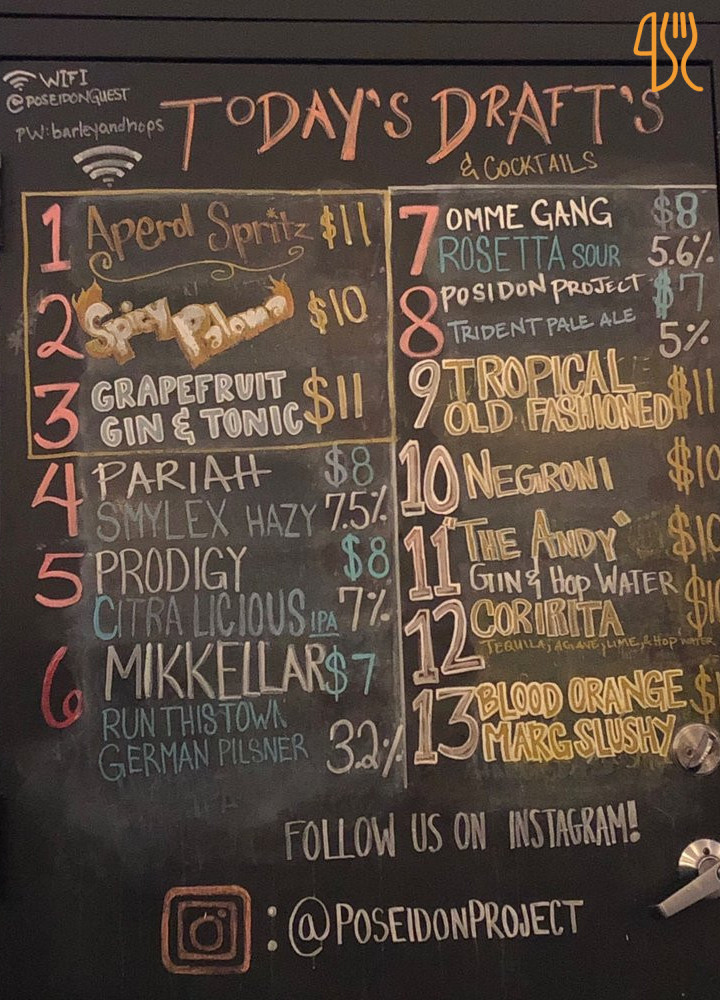 WIFI
@POSEIDONGUEST
PW:barleyandhops
TODAY'S DRAFT'S
& COCKTAILS
1 Aperol Spritz $11
2 Spicy Paloma $10
3 GRAPEFRUIT
GIN & TONIC $11
4 PARIAH $8
SMYLEX HAZY 7.5%
5 PRODIGY $8
CITRA LICIOUS IPA 7%
6 MIKKELLAR $7
RUN THIS TOWN
GERMAN PILSNER 3.2%
7 OMME GANG $8
ROSETTA SOUR 5.6%
8 POSIDON PROJECT $7
TRIDENT PALE ALE 5%
9 TROPICAL
OLD FASHIONED $11
10 NEGRONI $10
11 "THE ANDY"
GIN & HOP WATER
12 CORIRITA
TEQUILA, AGAVE, LIME, & HOP WATER
13 BLOOD ORANGE
MARG SLUSHY
FOLLOW US ON INSTAGRAM!
: @POSEIDONPROJECT